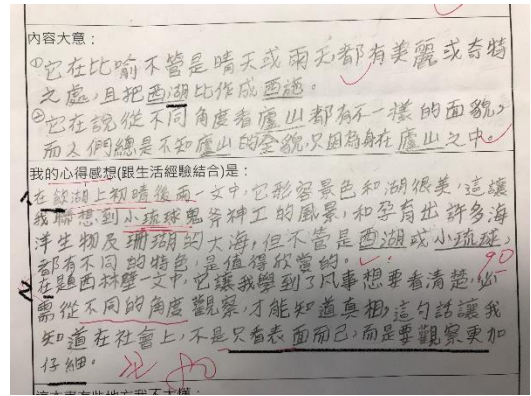 內容大意：
①它在比喻不管是晴天或雨天,都有美麗或奇特
之處,且把西湖比作成西施。
②它在說從不同角度看廬山都有不一樣的面貌,
而人們總是不知廬山的全貌,只因為身在廬山之中。
我的心得感想(跟生活經驗結合)是：
1、在飲湖上初晴後雨一文中,它形容景色和湖很美,這讓
我聯想到小琉球鬼斧神工的風景,和孕育出許多海
洋生物及珊瑚的大海,但不管是西湖或小琉球,
都有不同的特色,是值得欣賞的。
90
2、在題西林壁一文中,它讓我學到了凡事想要看清楚,必
需從不同的角度觀察,才能知道真相,這句話讓我
知道在社會上,不是只看表面而已,而是要觀察更加
仔細。